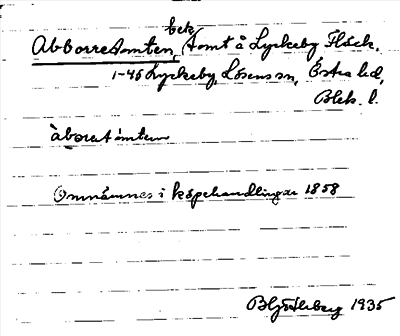 Abborretomten, betr tomt å Lyckeby Fläck.
1-45 Lyckeby, Lösens sn, Östra hd,
Blek. l.
àborat ómten
Omnämnes i köpehandlingar 1858
1935